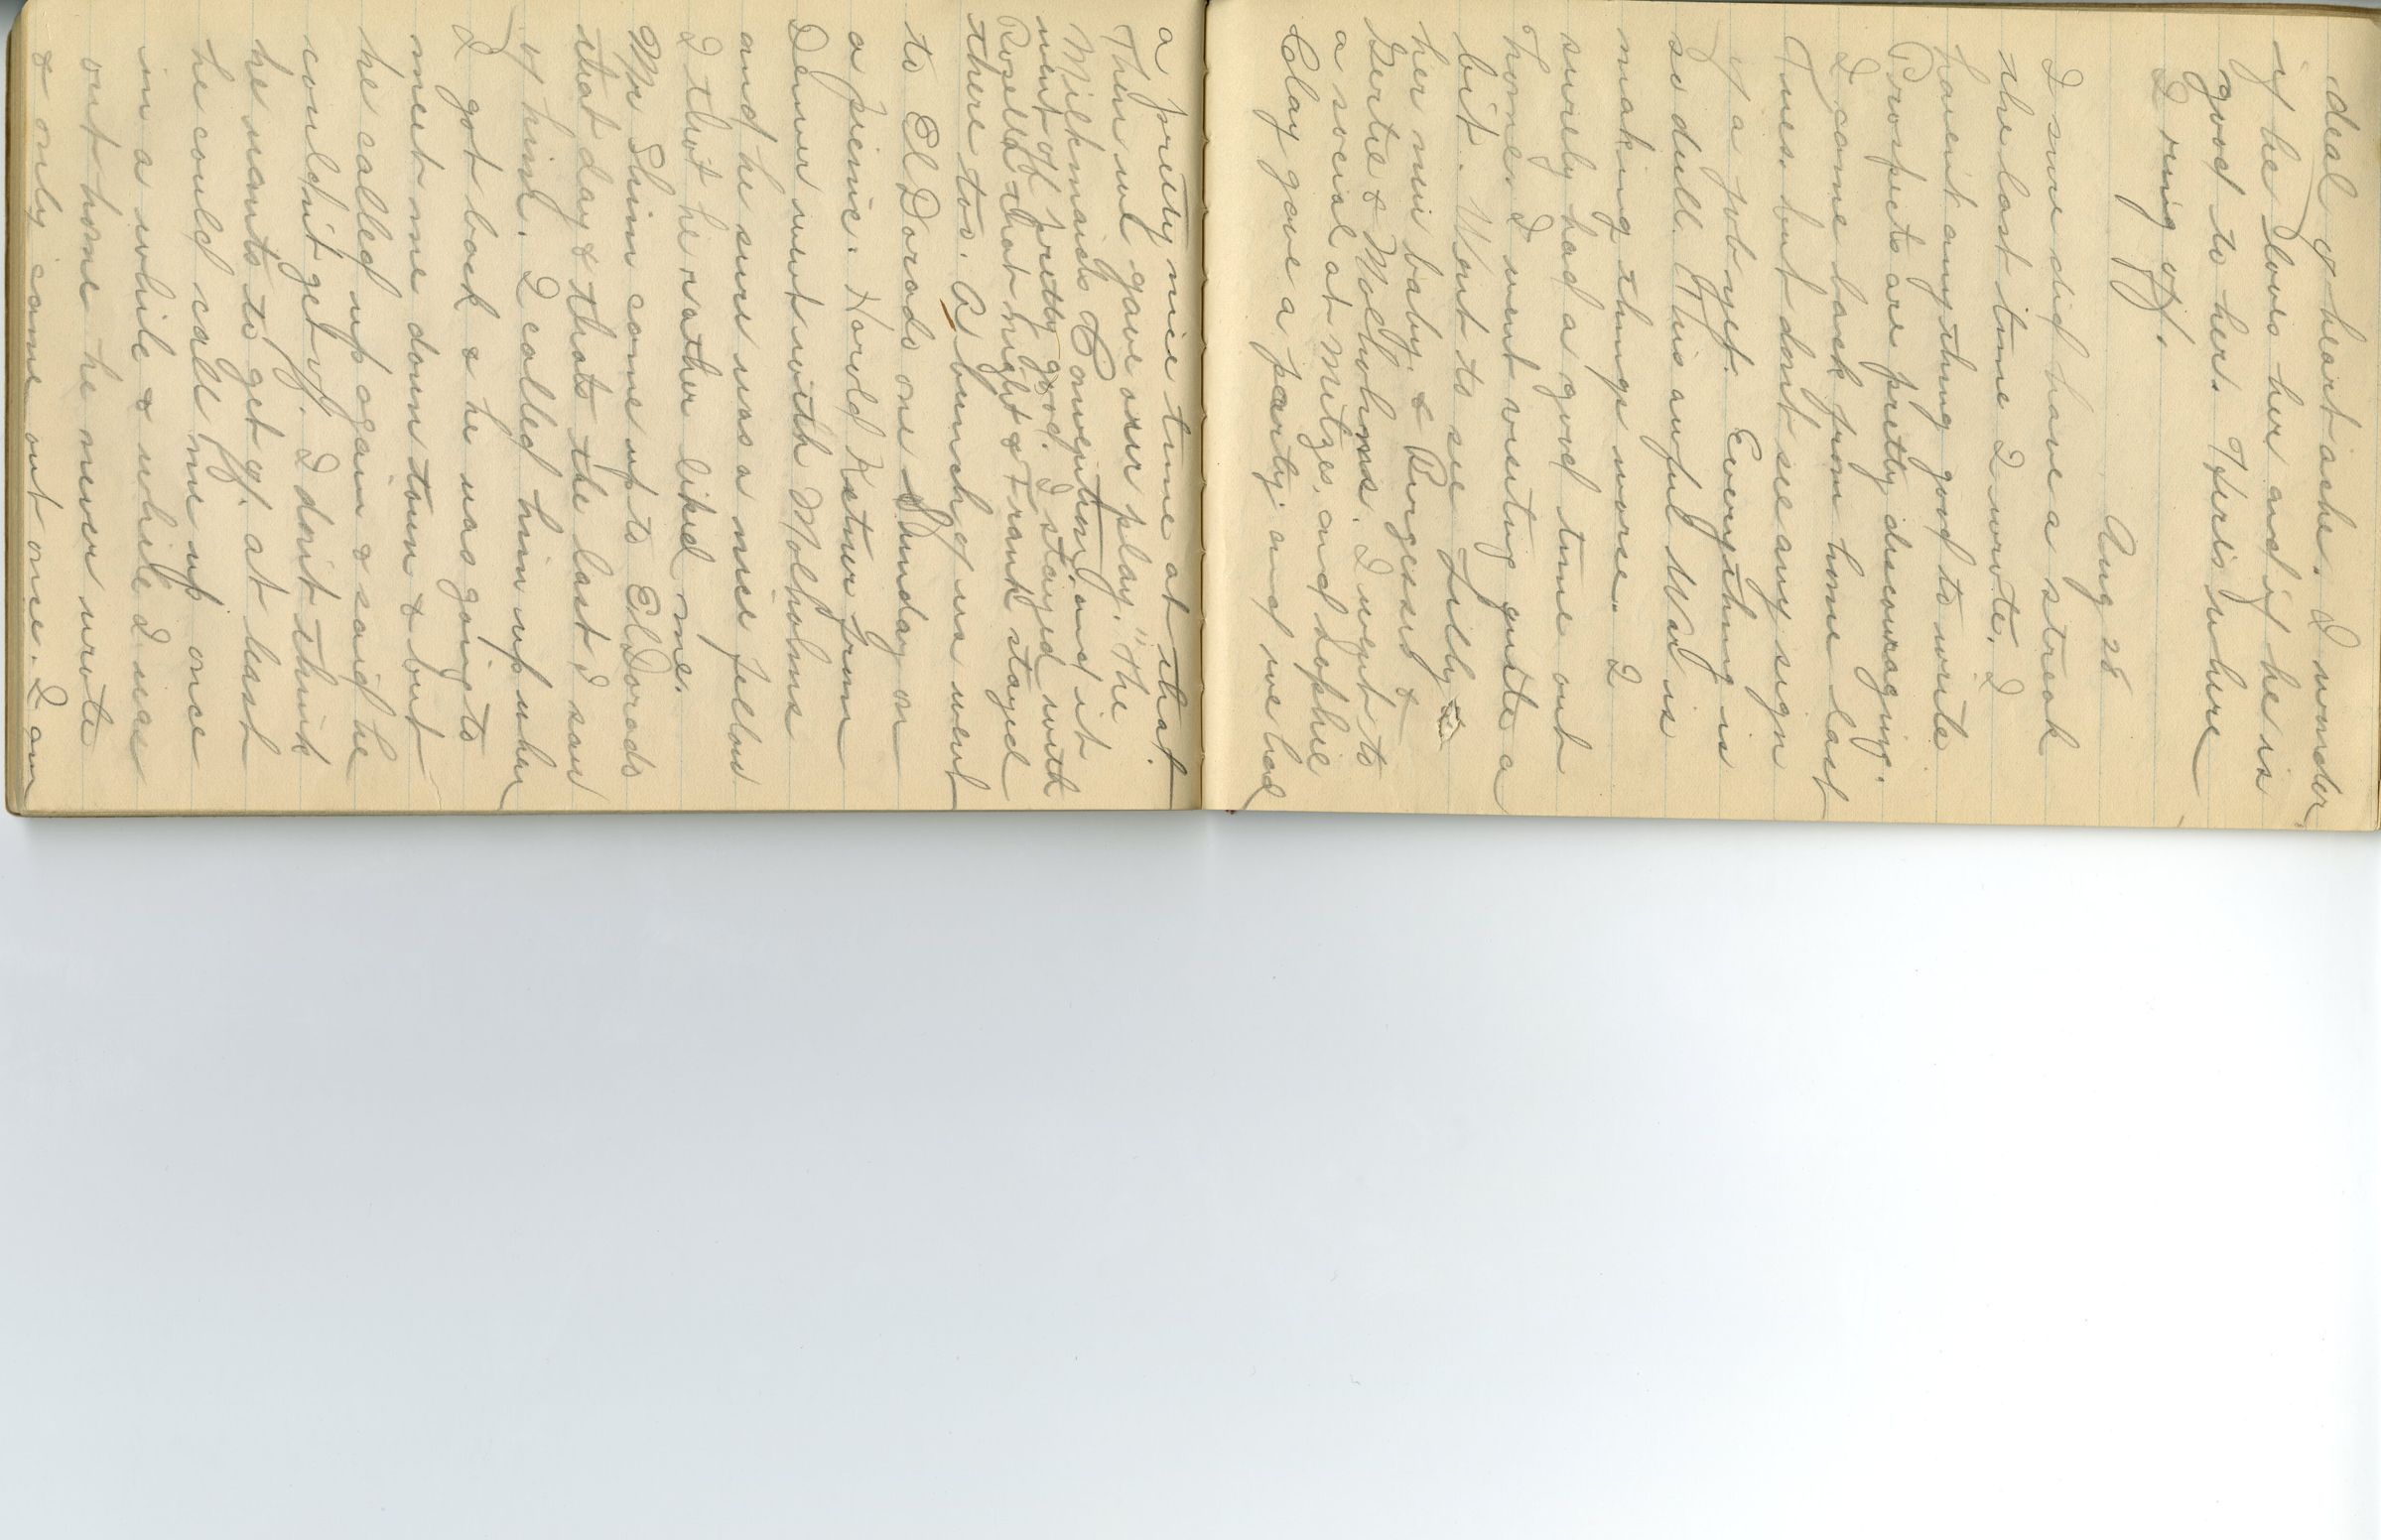 deal of heart ache. I wonder
if he loves her and if he is
good to her. Here's where
I ring off.
Aug 28
I sure did have a streak
the last time I wrote. I
havent anything good to write
Prospects are pretty discouraging.
I came back from home last
Tues. but dont see any sign
of a job yet. Everything is
so dull. This awful War is
making things worse. I
surely had a good time out
home. I went visiting quite a
bit. Went to see Lilly &
her new baby, & Burgesses &
Gertie & Molholms. I went to
a social at Metzes, and Sophie
Clay gave a party and we had
a pretty nice time at that.
Then we gave our play, "The
Milkmaids Convention", and it
went off pretty good. I stayed with
Rozella that night & Frank stayed
there too. A bunch of us went
to El Dorado one Sunday on
a picnic. Harold Ketner from
Denver went with Molholms
and he sure was a nice fellow
I thot he rather liked me.
Mr Shinn come up to El Dorado
that day & thats the last I saw
of him. I called him up when
I got back & he was going to
meet me down town & but
he called up again & said he
couldn't get off. I dont think
he wants to get off. at least
he could call me up once
in a while & while I was
out home he never wrote
& only came out once. I am